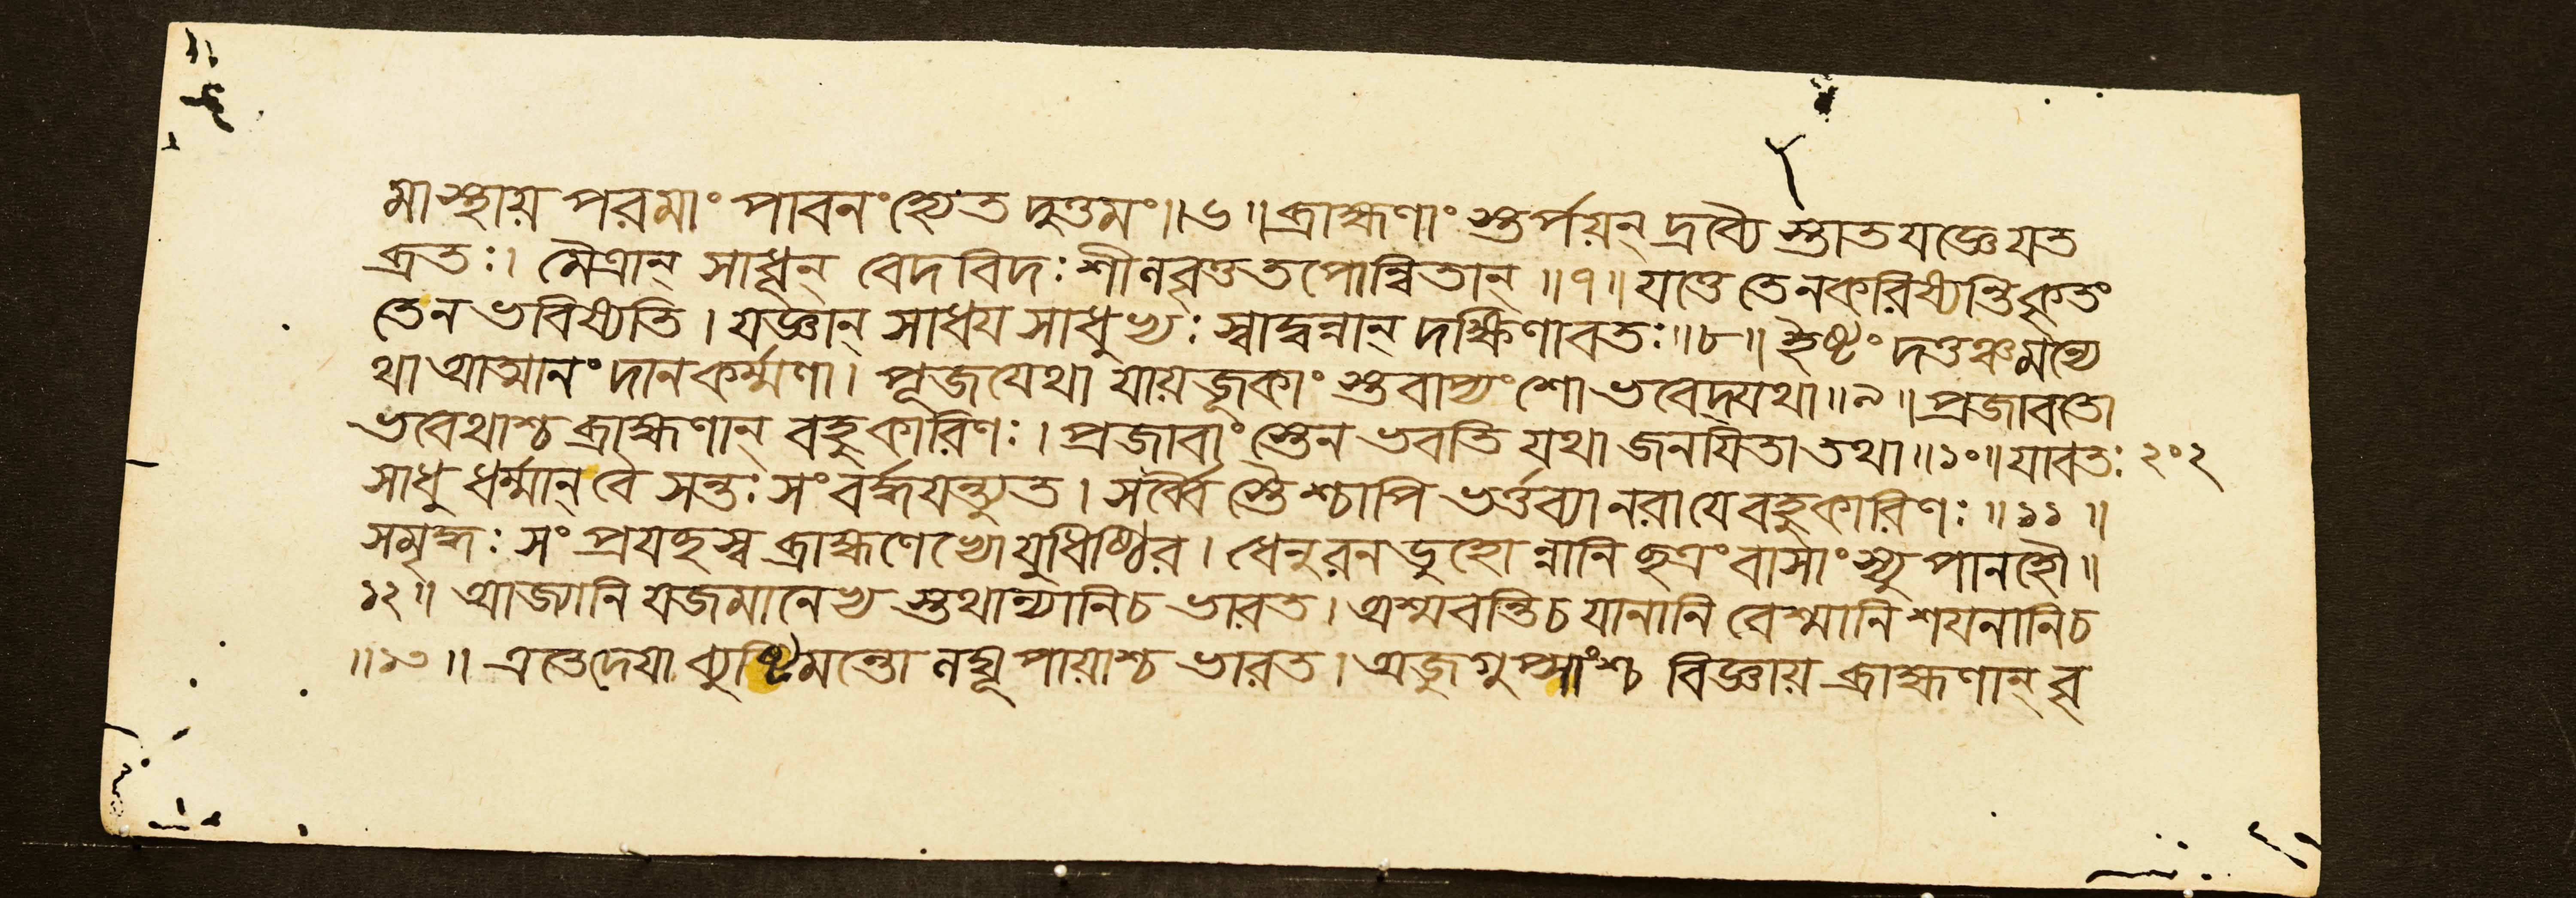 মাস্থায় পরমাং পাবনংহ্যেত দুত্তমং॥৬॥ব্রাহ্মণাং স্তর্পয়ন্ দ্রব্যৈ স্তাতযজ্ঞেযত
ব্রতঃ। মৈত্রান্ সাধূন্ বেদবিদঃ শীলবৃত্ততপোন্বিতান্॥৭॥যত্তে তেনকরিষ্যন্তিকৃতং
তেন ভবিষ্যতি। যজ্ঞান্ সাধয সাধুভ্যঃ স্বাদ্বন্নান্ দক্ষিণাবতঃ॥৮॥ইষ্টং দত্তঞ্চমন্যে
থাআত্মানং দানকর্ম্মণা। পূজযেথা যাযজূকাং স্তবাপ্যংশো ভবেদ্যথা॥৯॥প্রজাবতো
ভবেথাশ্চ ব্রাহ্মণান্ বহুকারিণঃ। প্রজাবাং স্তেন ভবতি যথা জনযিতা তথা॥১০॥যাবতঃ ২০২
সাধু ধর্ম্মান্ বৈ সন্তঃ সংবর্দ্ধযন্ত্যুত। সর্ব্বৈ স্তৈশ্চাপি ভর্ত্তব্যা নরা যে বহুকারিণঃ॥১১॥
সমৃদ্ধঃ সংপ্রযচ্ছস্ব ব্রাহ্মণেভ্যো যুধিষ্ঠির। ধেনুরনডুহোন্নানি ছত্রং বাসাংস্যু পানহৌ॥
১২॥ আজ্যানি যজমানেভ্য স্তথান্যানিচ ভারত। অশ্মবন্তিচ যানানি বেশ্মানি শযনানিচ
॥১৩॥ এতেদেযা ব্যুষ্টিমন্তো লঘূপায়াশ্চ ভারত। অজুগুপ্সাংশ্চ বিজ্ঞায় ব্রাহ্মণান্ বৃ